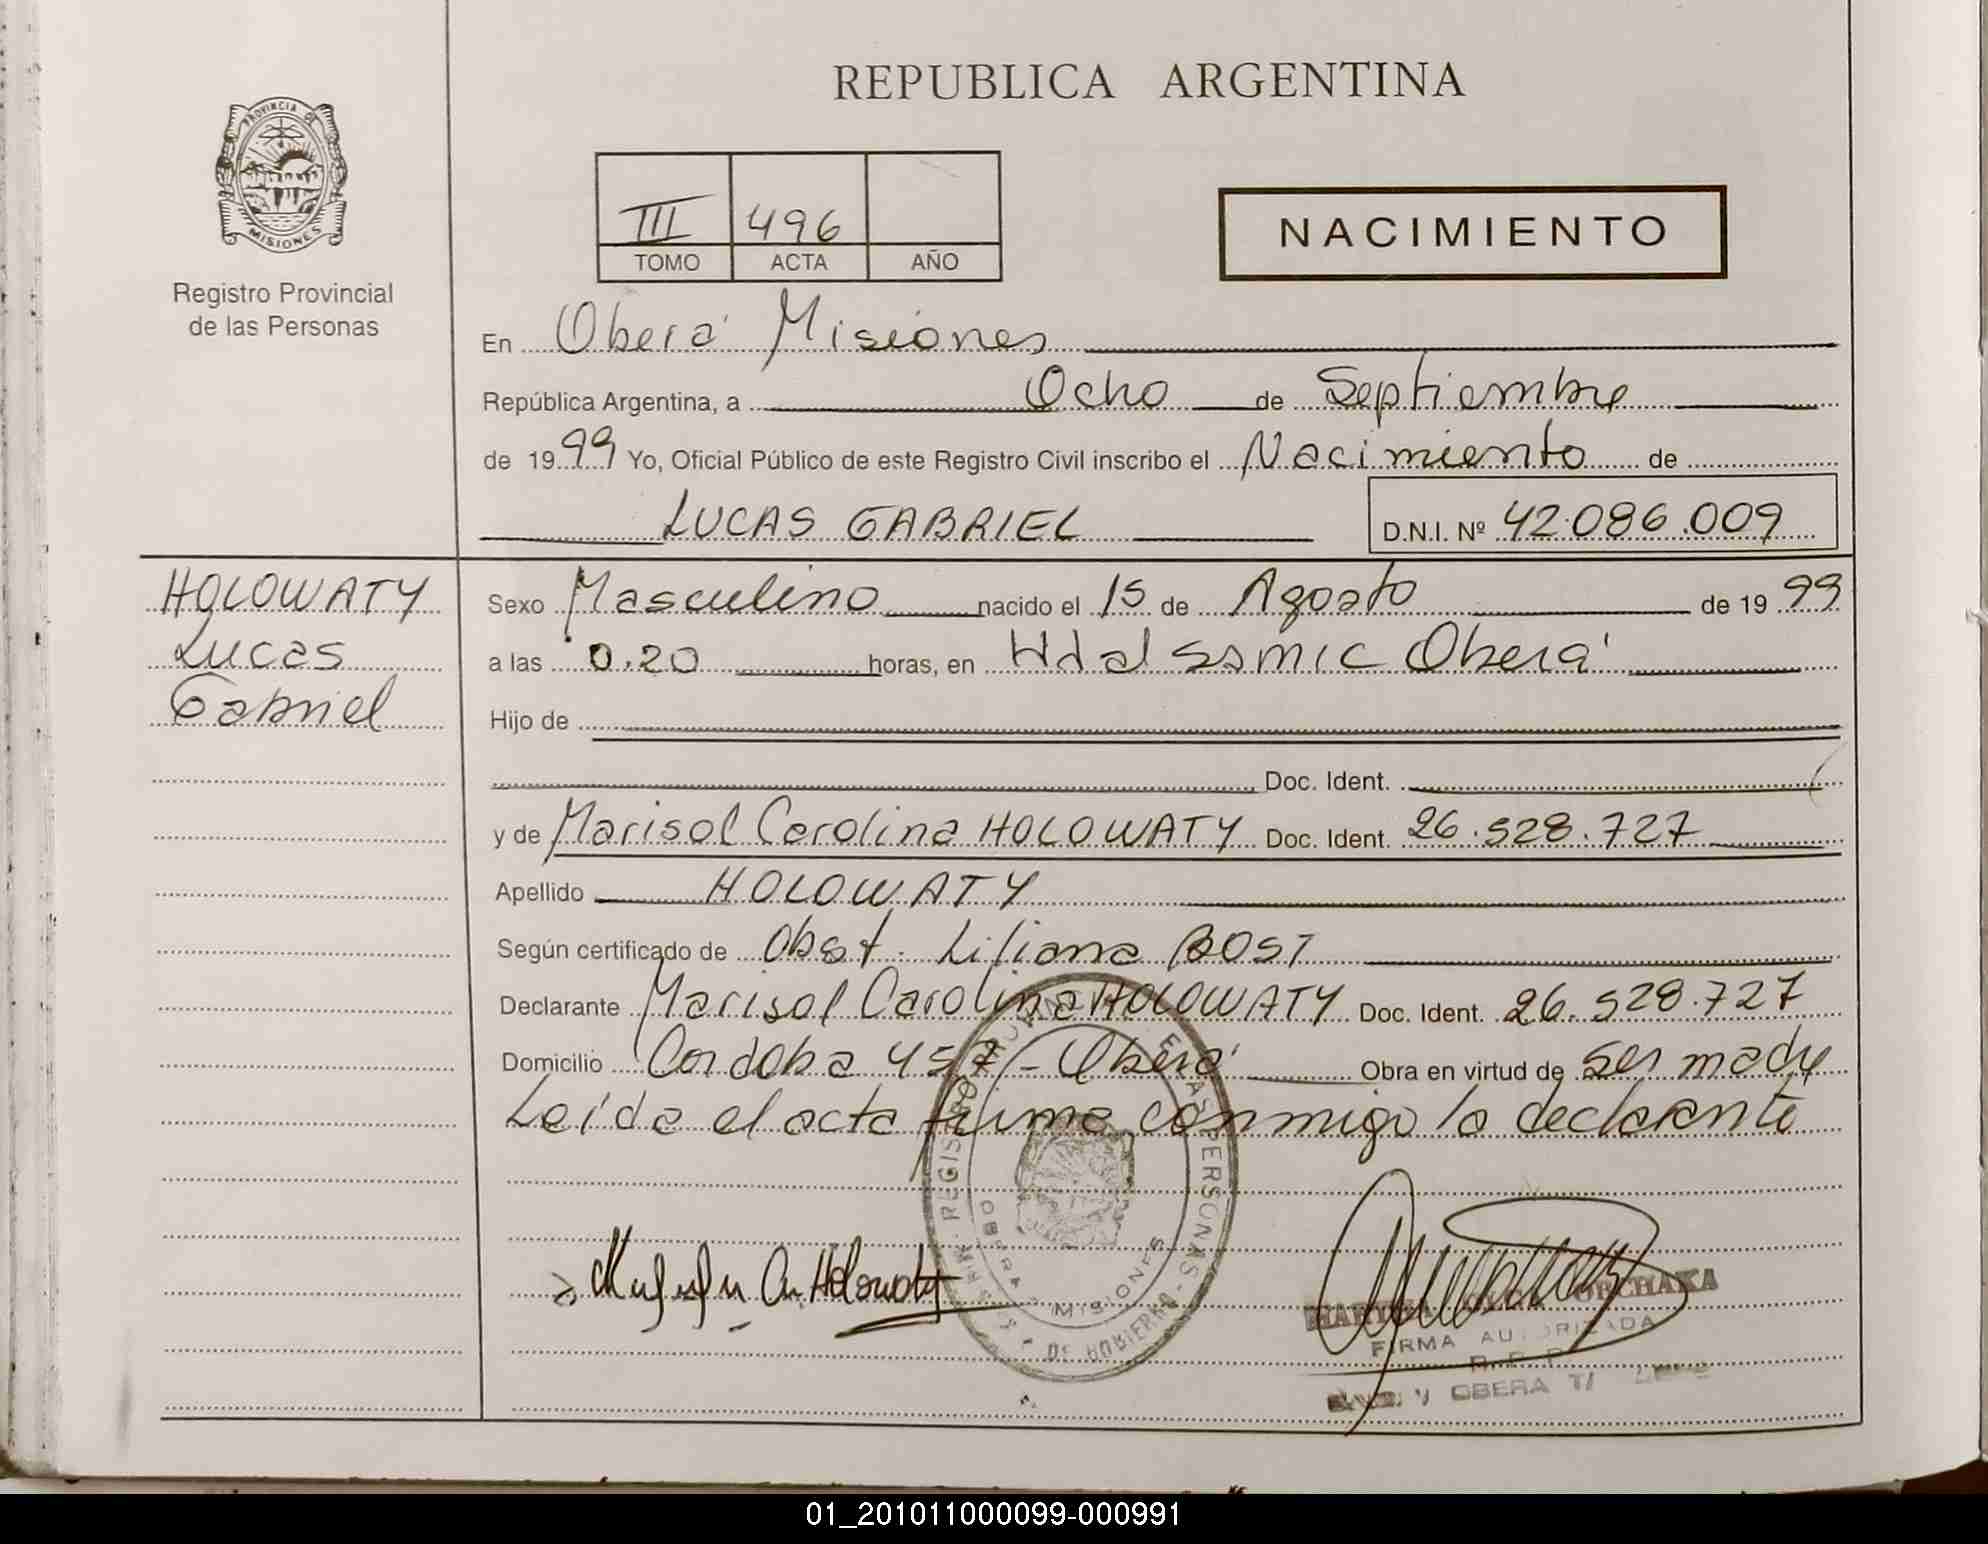 REPUBLICA ARGENTINA
PROVINCIA DE
MISIONES
Registro Provincial
de las Personas
III 496
TOMO ACTA AÑO
NACIMIENTO
En Oberá Misiones
República Argentina, a Ocho de Septiembre
de 1999 Yo, Oficial Público de este Registro Civil inscribo el Nacimiento de
LUCAS GABRIEL D.N.I. Nº 42.086.009
HOLOWATY
Lucas
Gabriel
Sexo Masculino nacido el 15 de Agosto de 1999
a las 0.20 horas, en Hdal SSMIC Oberá
Hijo de
Doc. Ident.
y de Marisol Carolina HOLOWATY Doc. Ident. 26.528.727
Apellido HOLOWATY
Según certificado de Obst. Liliana BOST
Declarante Marisol Carolina HOLOWATY Doc. Ident. 26.528.727
Domicilio Cordoba 457 - Oberá Obra en virtud de ser madre
Leída el acta firma conmigo la declarante
OBERA MISIONES
Holowaty
FIRMA AUTORIZADA
OBERA
01_201011000099-000991